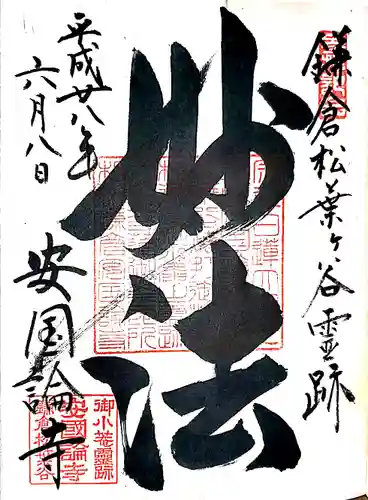 鎌倉松葉ヶ谷霊跡
妙法
平成廿八年
六月八日
安国論寺
御小菴霊跡
安國論寺